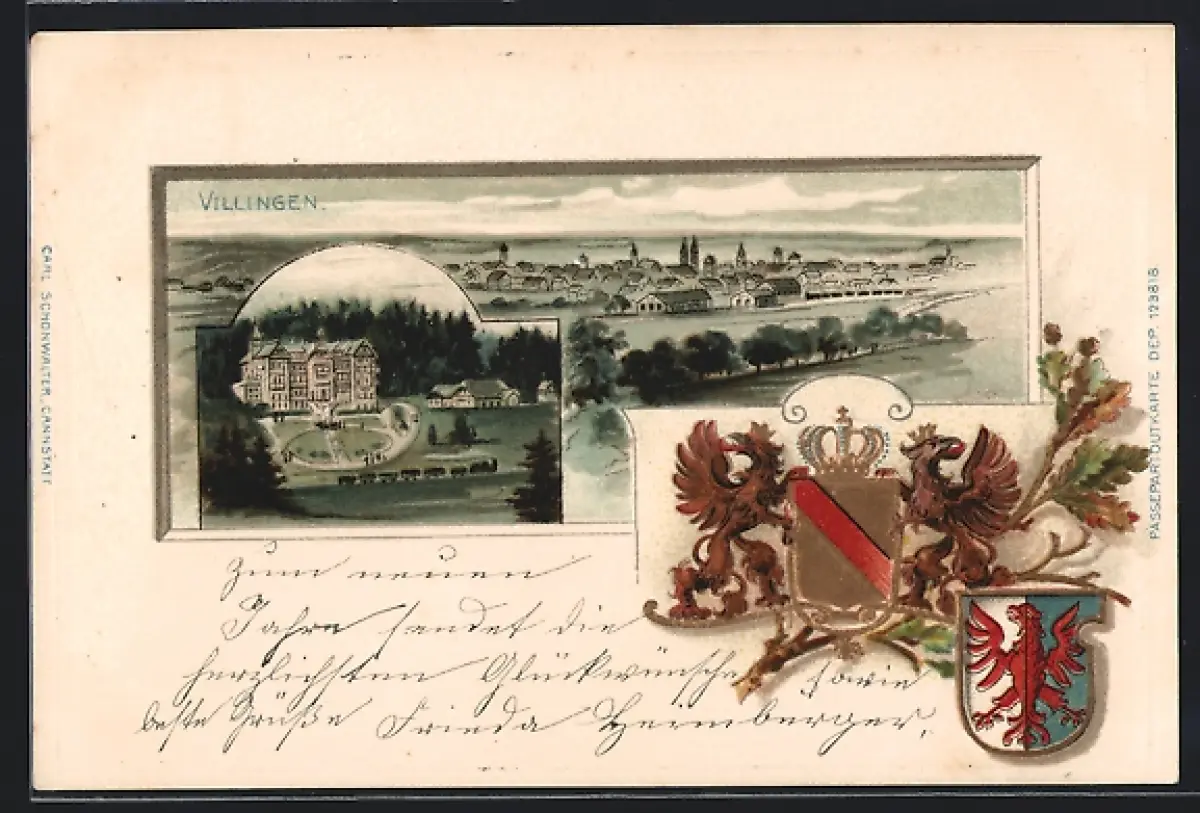 VILLINGEN.
CARL SCHÖNWALTER, CANNSTATT
PASSEPARTOUTKARTE DEP. 123818
Zum neuen
Jahre sendet die
herzlichsten Glückwünsche sowie
beste Grüße Frieda Heimberger.